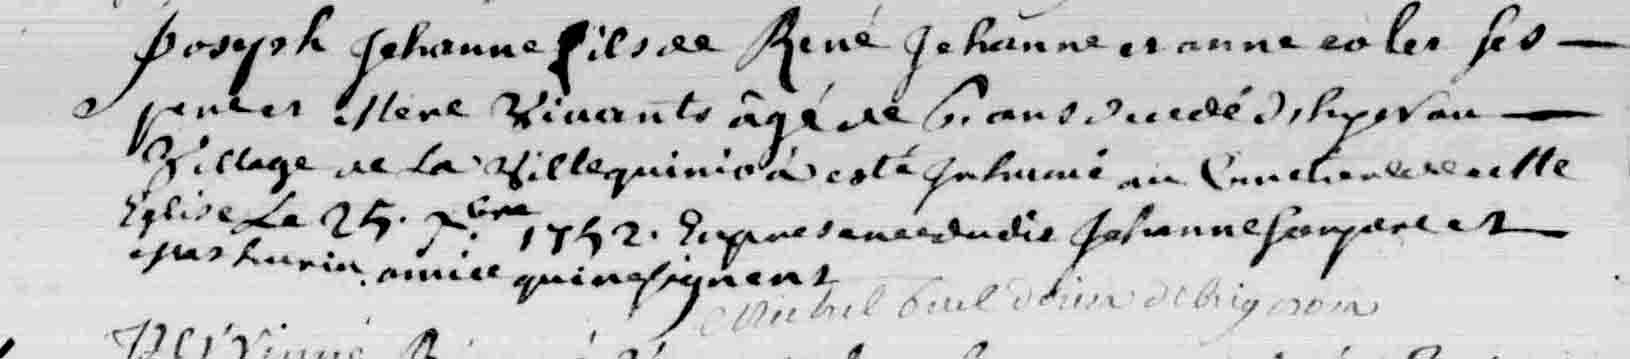 Joseph Jehanne fils de René Jehanne et anne eoler ses
pere et Mere Vivants âgé de 6. ans decedé d'hyer au
Village de La Villequinio a esté Inhumé au Cimetiere de cette
Eglise Le 25. 7bre 1752. En presence dudit Jehanne son pere et
Mathurin amice qui ne signent
Michel